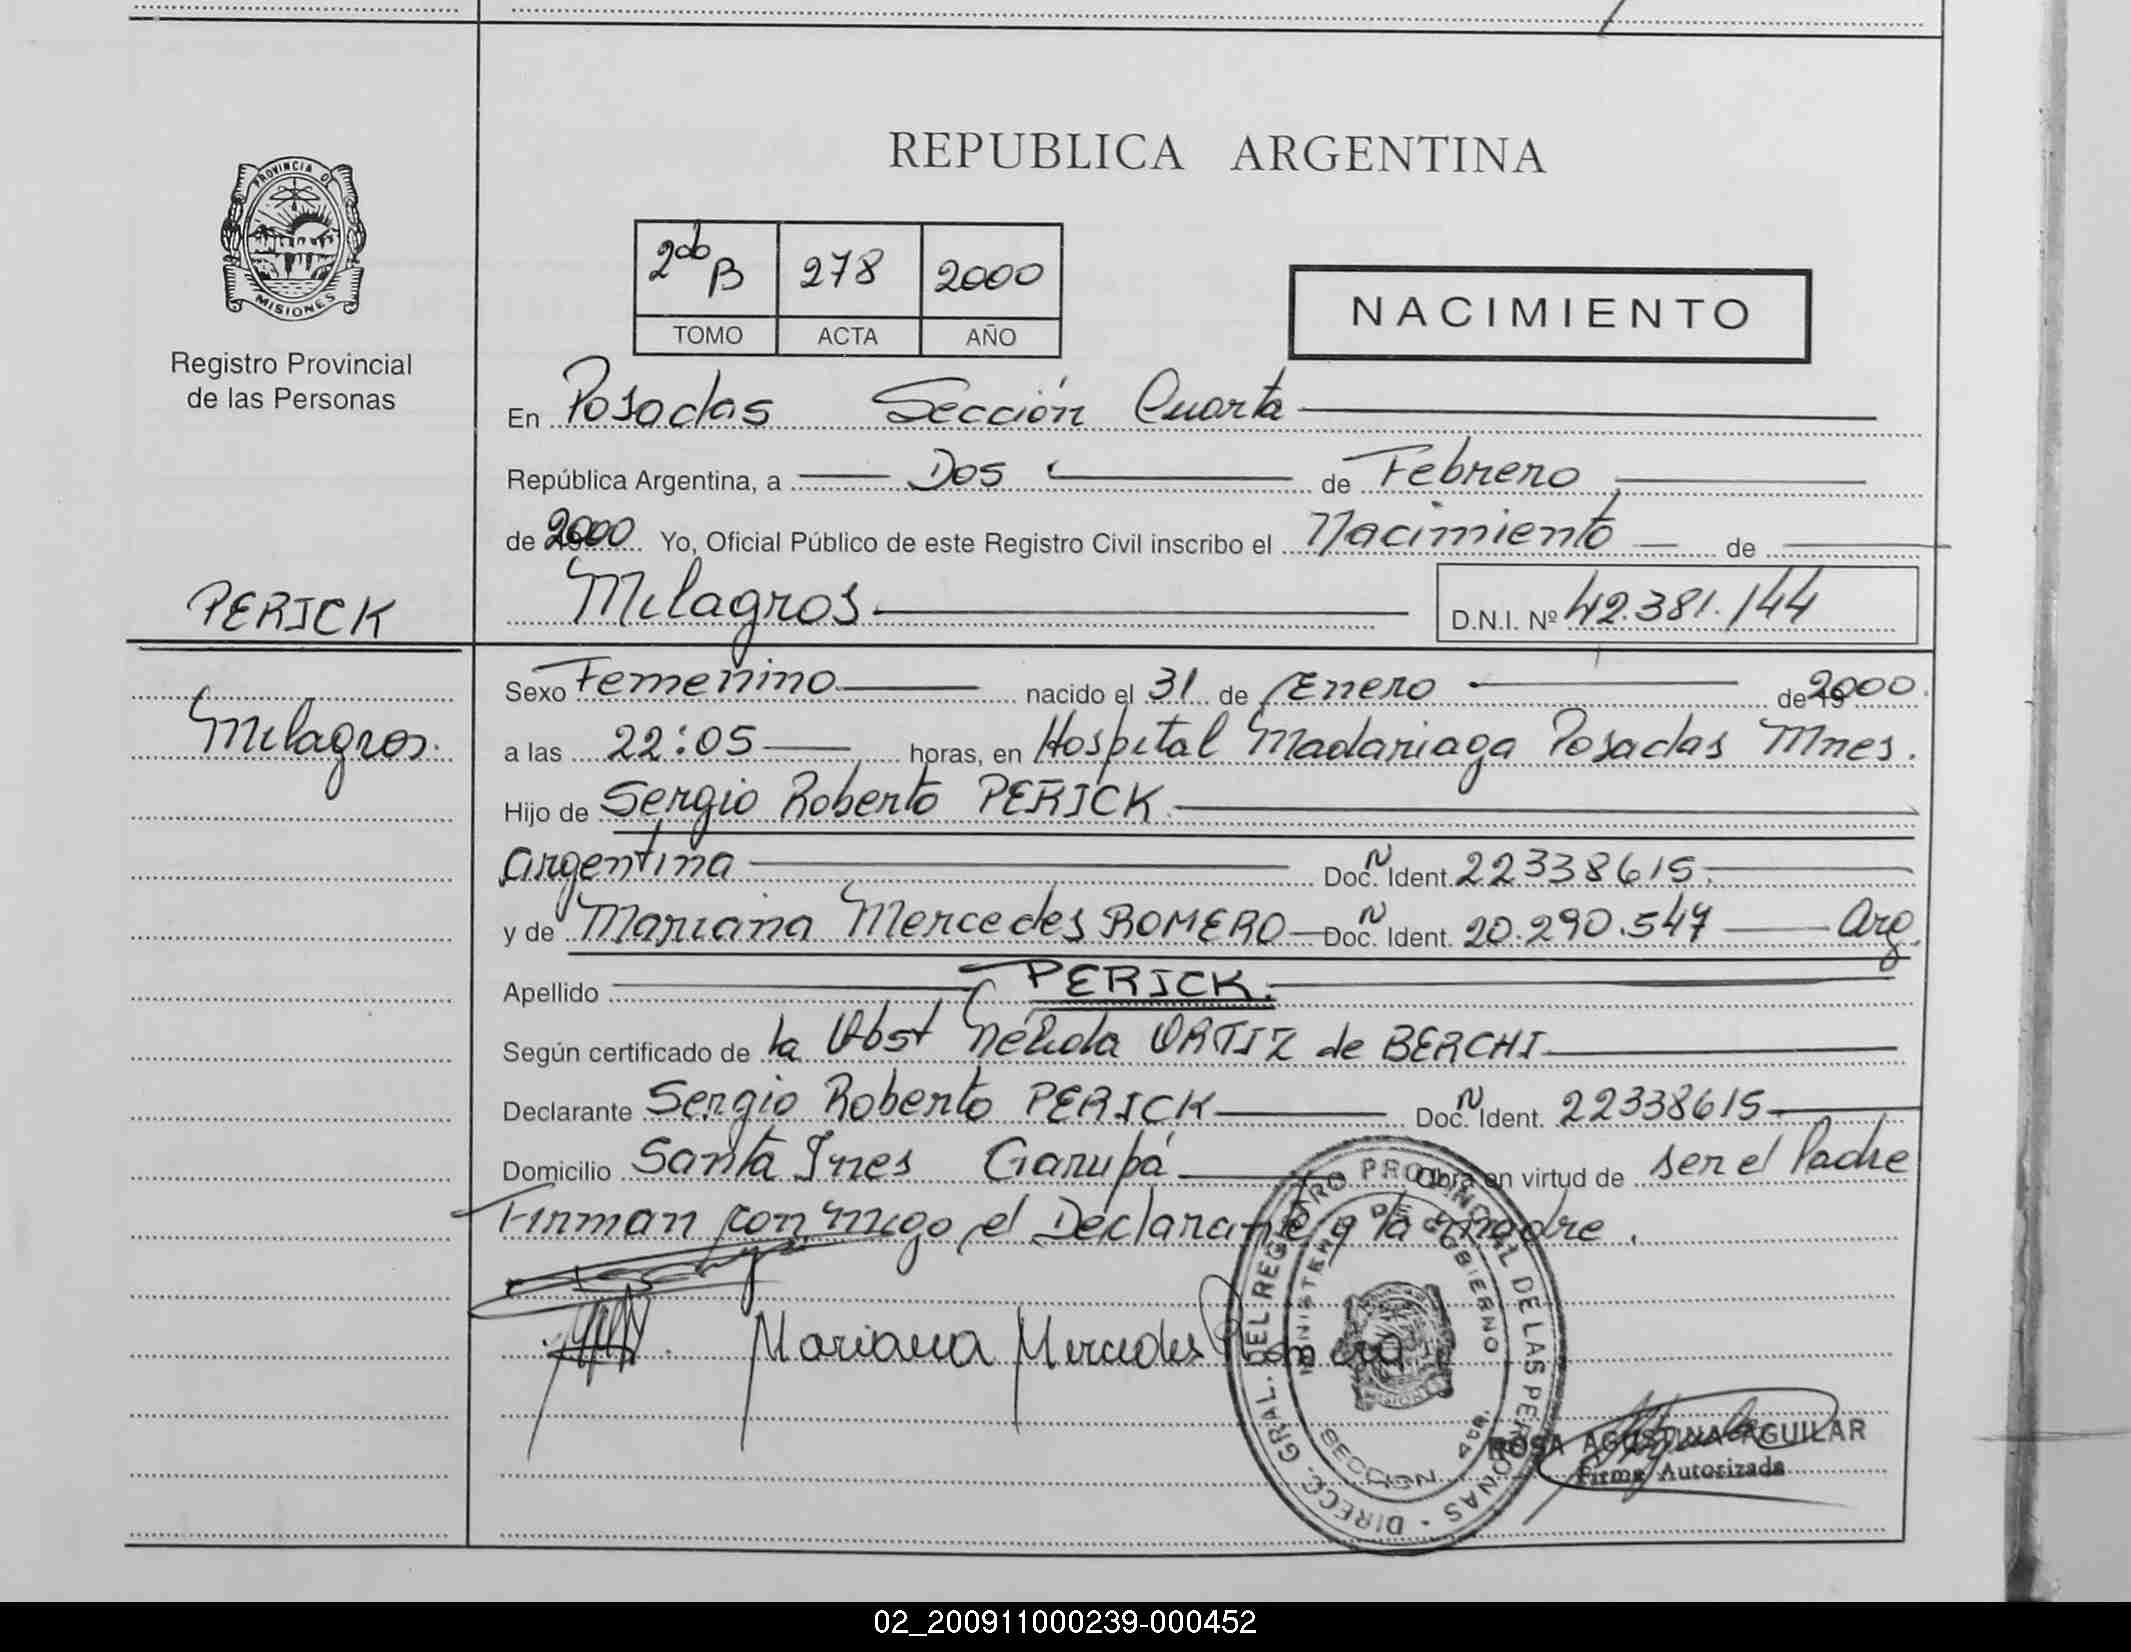 REPUBLICA ARGENTINA
PROVINCIA DE
MISIONES
Registro Provincial
de las Personas
2do B 278 2000
TOMO ACTA AÑO
NACIMIENTO
En Posadas Sección Cuarta
República Argentina, a Dos de Febrero
de 2000 Yo, Oficial Público de este Registro Civil inscribo el Nacimiento de
PERICK
Milagros D.N.I. Nº 42.381.144
Milagros.
Sexo Femenino nacido el 31 de Enero de 2000.
a las 22:05 horas, en Hospital Madariaga Posadas Mnes.
Hijo de Sergio Roberto PERICK
Argentina Doc. N Ident. 22338615.
y de Mariana Mercedes ROMERO Doc. N Ident. 20.290.547 Arg.
Apellido PERICK.
Según certificado de la Obst Nélida ORTIZ de BERCHI
Declarante Sergio Roberto PERICK Doc. N Ident. 22338615
Domicilio Santa Ines Garupá Obra en virtud de ser el Padre
Firman conmigo el Declarante y la madre.
Mariana Mercedes Romero
DIRECC. GRAL. DEL REGISTRO PROVINCIAL DE LAS PERSONAS
MINISTERIO DE GOBIERNO
SECCION 4ta.
ROSA AGUSTINA AGUILAR
Firma Autorizada
02_200911000239-000452